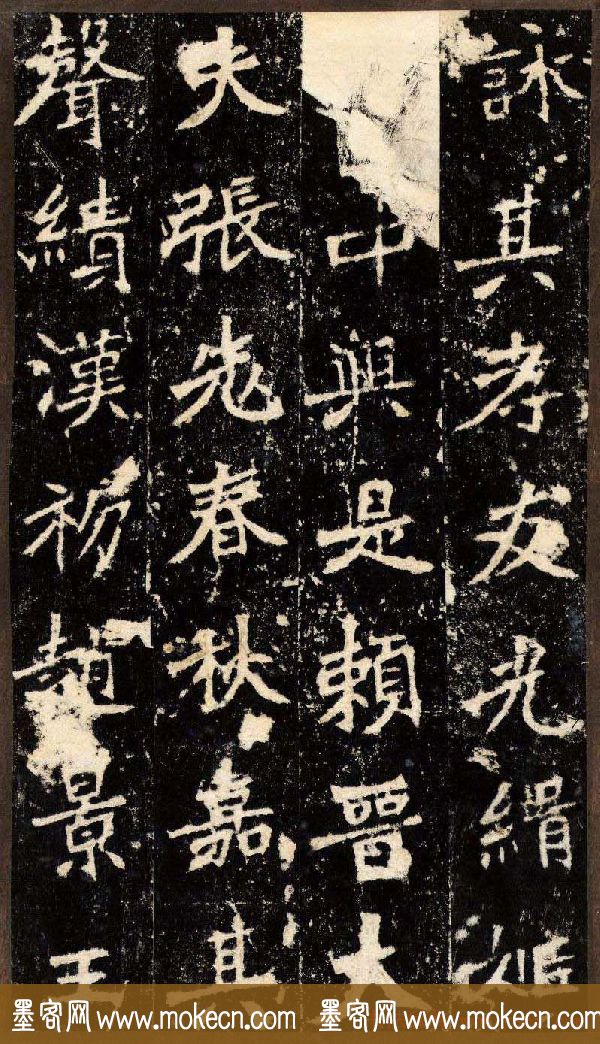 詠其孝友光緝姬
中興是賴晉大
夫張老春秋嘉其
聲績漢初趙景王
墨客网 www.mokecn.com 墨客网 www.mokecn.com